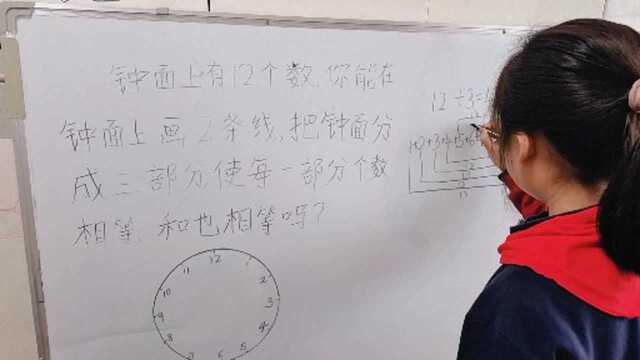 钟面上有12个数,你能在
钟面上画2条线,把钟面分
成三部分,使每一部分个数
相等,和也相等吗?
12÷3=
1+2+3+4+5+6
12
11
10
9
8
7
6
5
4
3
2
1